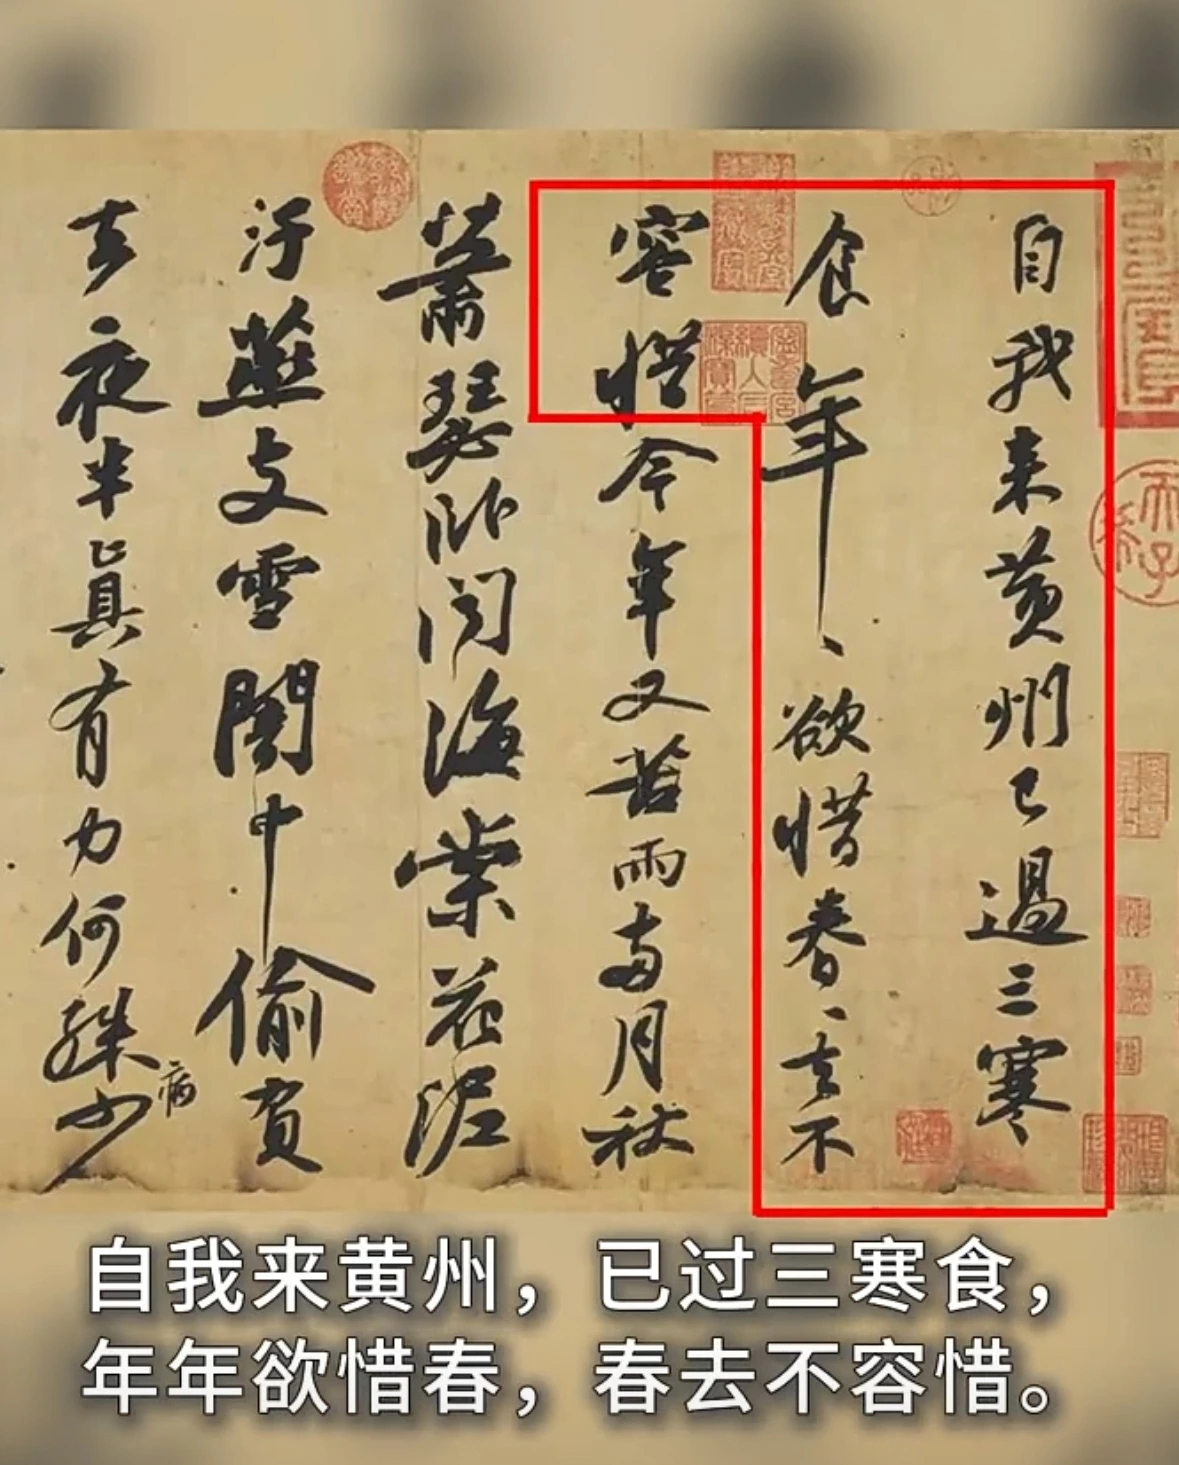 自我来黄州已過三寒
食年、欲惜春、去不
容惜今年又苦雨两月秋
蕭瑟卧闻海棠花泥
汙燕支雪闇中偷負
去夜半真有力何殊少
病
自我来黄州，已过三寒食，
年年欲惜春，春去不容惜。